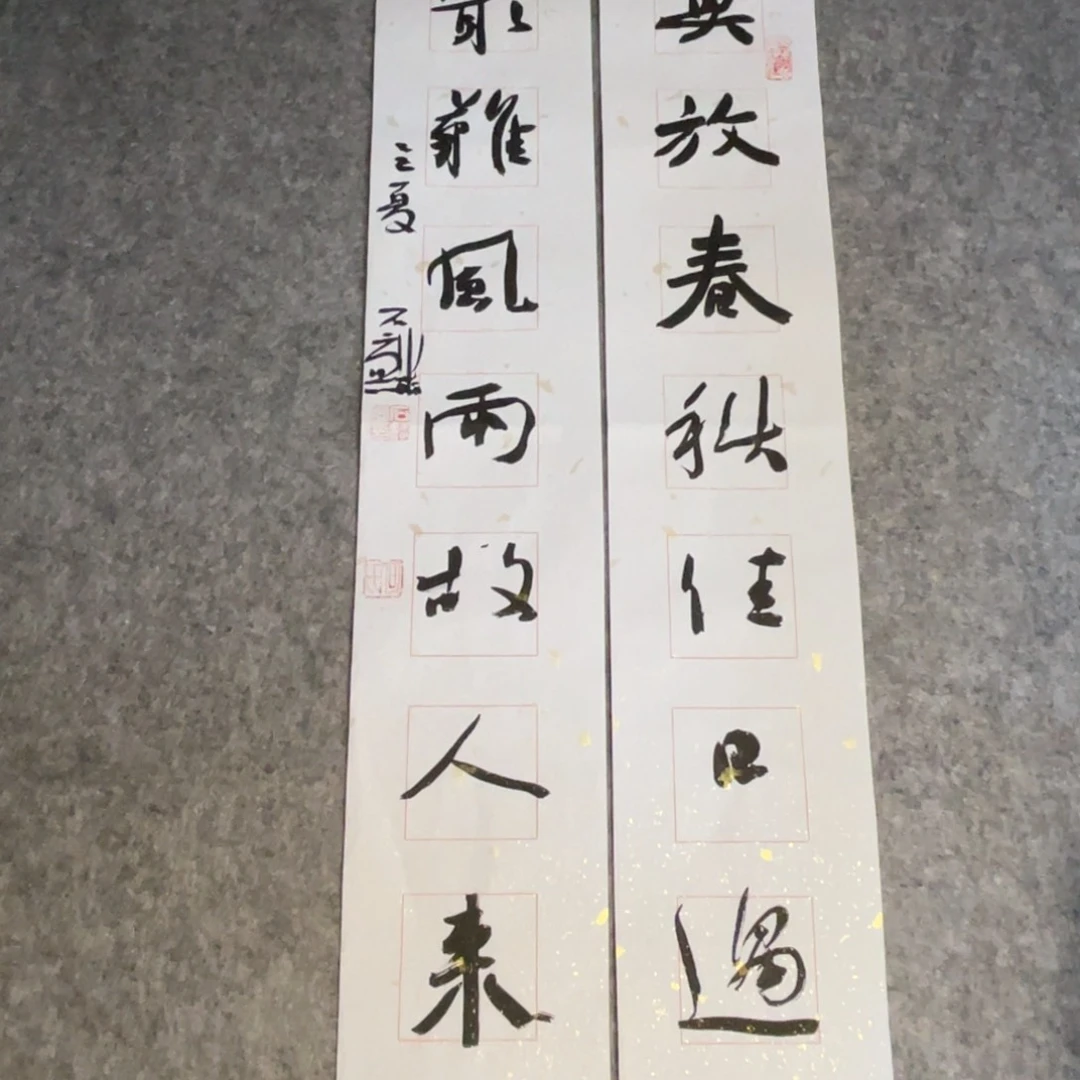 莫放春秋佳日過
最難風雨故人來
之夏